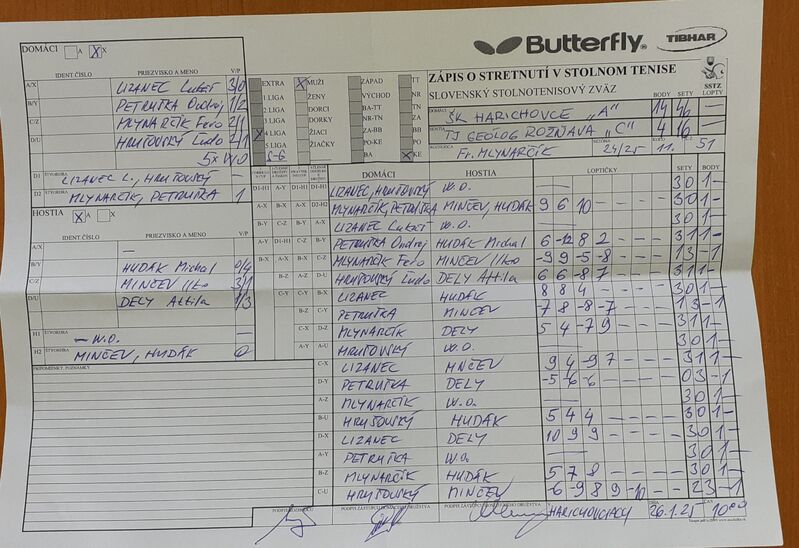 Butterfly
TIBHAR
DOMÁCI A X X
IDENT ČÍSLO PRIEZVISKO A MENO V/P
A/X LIZANEC Lukáš 3/0
B/Y PETRUŠKA Ondrej 1/2
C/Z MLYNARČÍK Fero 2/1
D/U HRUŠOVSKÝ Ľudo 2/1
5x W/O
D1 ŠTVORHRA LIZANEC L., HRUŠOVSKÝ –
D2 MLYNARČÍK, PETRUŠKA 1
HOSTIA X A X
IDENT ČÍSLO PRIEZVISKO A MENO V/P
A/X —
B/Y HUDÁK Michal 0/4
C/Z MINČEV Ilko 3/1
D/U DELY Attila 1/3
H1 ŠTVORHRA — W.O. —
H2 ŠTVORHRA MINČEV, HUDÁK 0
PRIPOMIENKY, POZNÁMKY
EXTRA X MUŽI ZÁPAD TT
1 LIGA ŽENY VÝCHOD NR
2 LIGA DORCI BA-TT TN
3 LIGA DORKY NR-TN ZA
X 4 LIGA ŽIACI ZA-BB BB
5 LIGA ŽIAČKY PO-KE PO
5-6 BA X KE
ZÁPIS O STRETNUTÍ V STOLNOM TENISE
SLOVENSKÝ STOLNOTENISOVÝ ZVÄZ
SSTZ
BODY SETY LOPTY
DOMÁCI ŠK HARICHOVCE „A“ 14 46 —
HOSTIA TJ GEOLÓG ROŽŇAVA „C“ 4 16 —
Fr. MLYNARČÍK SEZÓNA 24/25 KOLO 11. 51
DOMÁCI HOSTIA LOPTIČKY SETY BODY
LIZANEC, HRUŠOVSKÝ W.O. — 3 0 1 –
MLYNARČÍK, PETRUŠKA MINČEV, HUDÁK 9 6 10 – – – – 3 0 1 –
LIZANEC Lukáš W.O. — 3 0 1 –
PETRUŠKA Ondrej HUDÁK Michal 6 -12 8 2 – – – 3 1 1 –
MLYNARČÍK Fero MINČEV Ilko -9 9 -5 -8 – – – 1 3 – 1
HRUŠOVSKÝ Ľudo DELY Attila 6 6 -8 7 – – – 3 1 1 –
LIZANEC HUDÁK 8 8 4 – – – – 3 0 1 –
PETRUŠKA MINČEV 7 -8 -8 -7 – – – 1 3 – 1
MLYNARČÍK DELY 5 4 -7 9 – – – 3 1 1 –
HRUŠOVSKÝ W.O. — 3 0 1 –
LIZANEC MINČEV 9 4 -9 7 – – – 3 1 1 –
PETRUŠKA DELY -5 -6 -6 – – – – 0 3 – 1
MLYNARČÍK W.O. — 3 0 1 –
HRUŠOVSKÝ HUDÁK 5 4 4 – – – – 3 0 1 –
LIZANEC DELY 10 9 9 – – – – 3 0 1 –
PETRUŠKA W.O. — 3 0 1 –
MLYNARČÍK HUDÁK 5 7 8 – – – – 3 0 1 –
HRUŠOVSKÝ MINČEV -6 -9 8 9 -10 – – 2 3 – 1
HARICHOVCIACH 26.1.25 ČAS 10:00